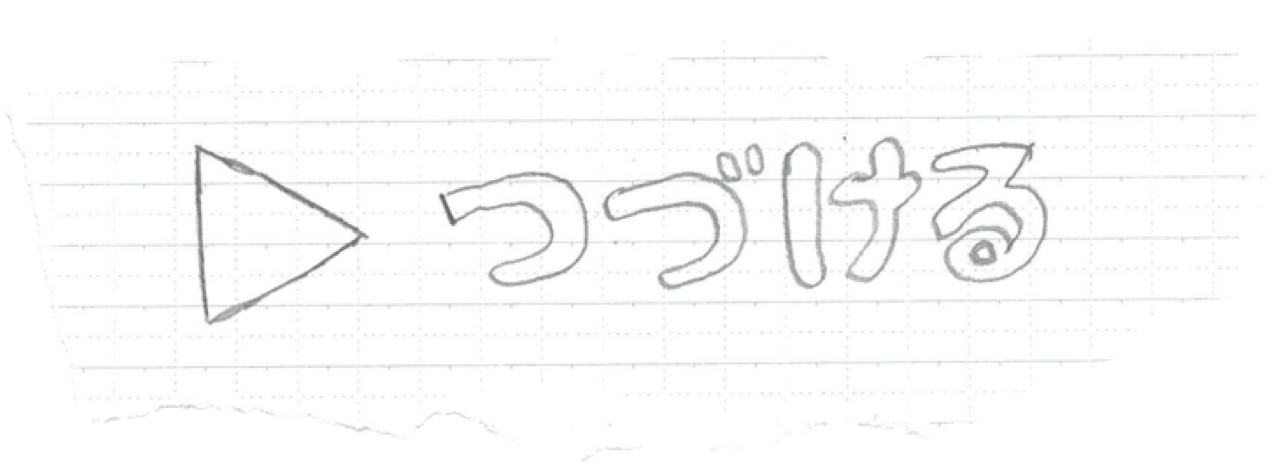 つづける